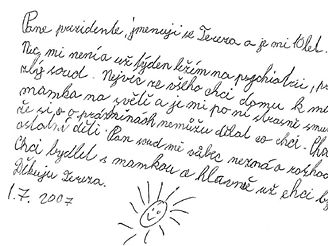 Pane prezidente, jmenuji se Tereza a je mi 10 let.
Nic mi není a už týden ležím na psychiatrii, pr
zlý soud. Nejvíc ze všeho chci domu k m
mamka na světě a je mi po ní strašně smu
že si o prázninách nemůžu dělat co chci. Chc
ostatní děti. Pan soud mě vůbec nezná a rozhod
Chci bydlet s mamkou a hlavně už chci bý
Děkuju Tereza.
1.7. 2007